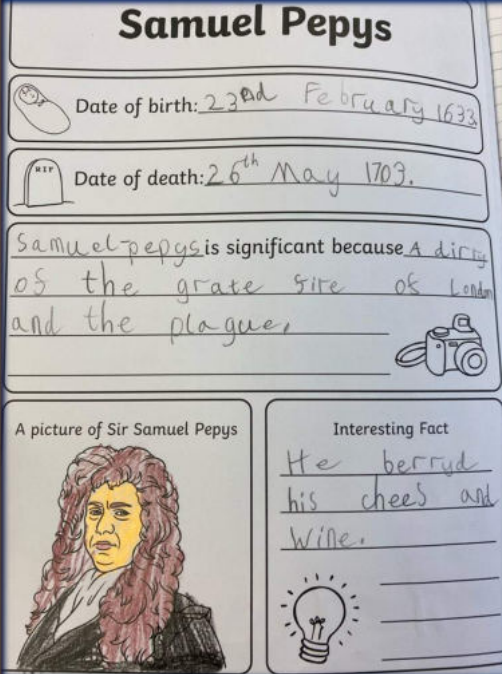 Samuel Pepys
Date of birth: 23nd February 1633
RIP
Date of death: 26th May 1703.
Samuel pepys is significant because A dirry
of the grate fire of London
and the plague.
A picture of Sir Samuel Pepys
Interesting Fact
He berryd
his chees and
wine.